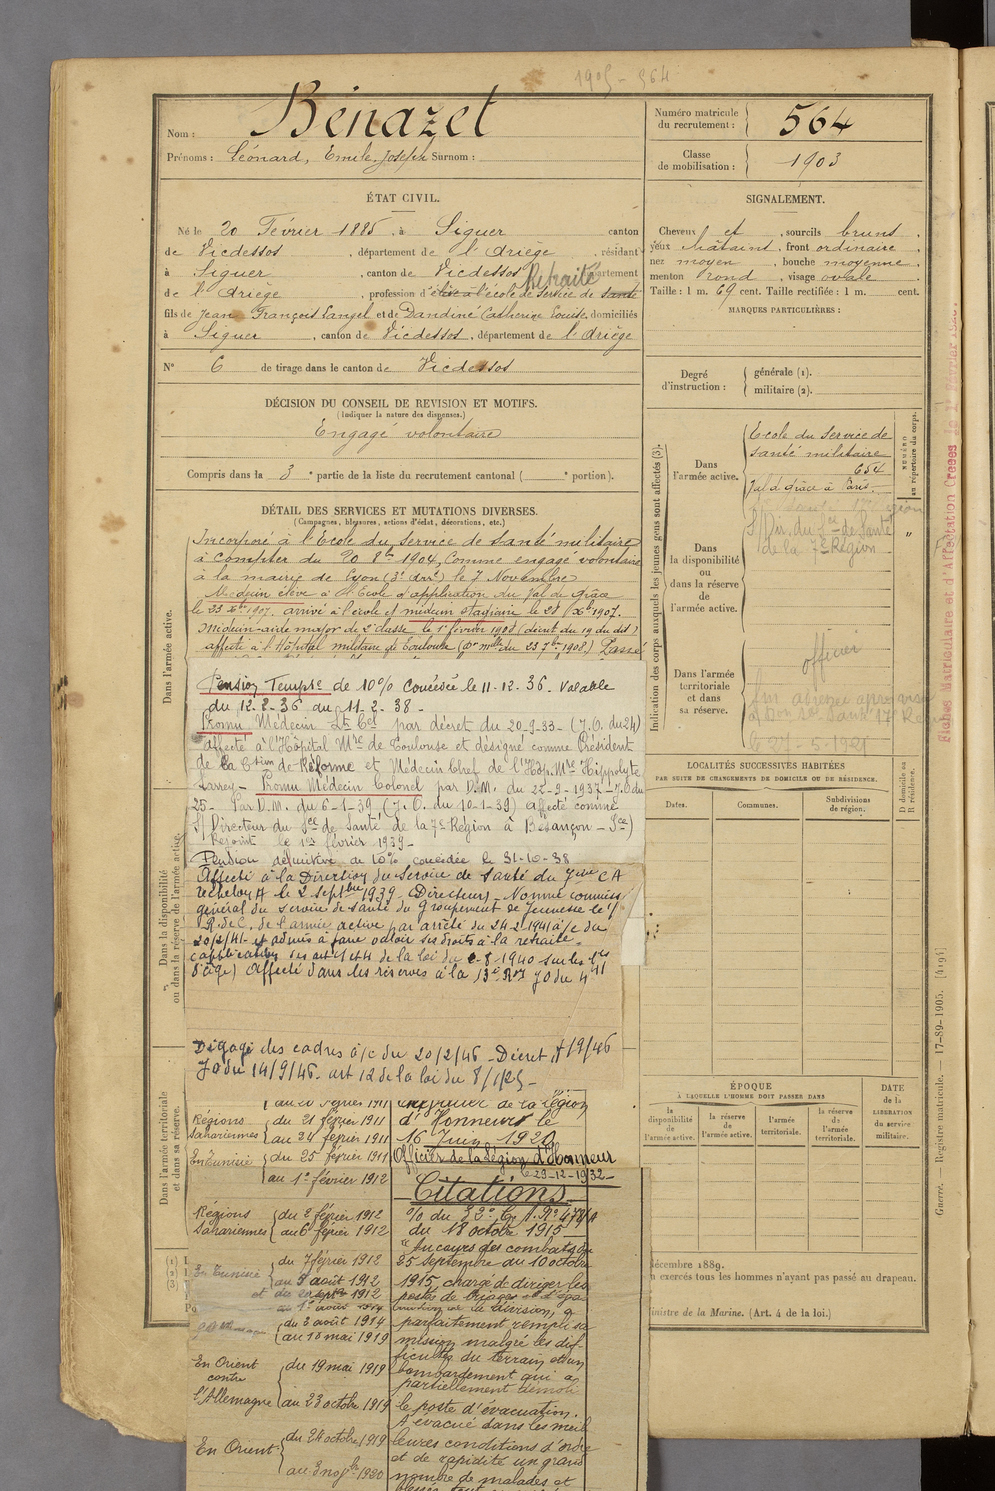 1905 - 564
Nom : Bénazet
Prénoms : Léonard, Emile, Joseph Surnom :
Numéro matricule du recrutement : 564
Classe de mobilisation : 1903
ÉTAT CIVIL.
Né le 20 Février 1885, à Siguer canton
de Vicdessos, département de l'Ariège, résidant
à Siguer, canton de Vicdessos, département
Retraité
de l'Ariège, profession d'élève à l'école de service de santé
fils de Jean François Pangel et de Dandine Catherine Louise, domiciliés
à Siguer, canton de Vicdessos, département de l'Ariège
N° 6 de tirage dans le canton de Vicdessos
SIGNALEMENT.
Cheveux et, sourcils bruns,
yeux châtains, front ordinaire,
nez moyen, bouche moyenne,
menton rond, visage ovale
Taille : 1 m. 69 cent. Taille rectifiée : 1 m. cent.
MARQUES PARTICULIÈRES :
Degré d'instruction : générale (1).
militaire (2).
DÉCISION DU CONSEIL DE REVISION ET MOTIFS.
(Indiquer la nature des dispenses.)
Engagé volontaire
Compris dans la 3e partie de la liste du recrutement cantonal ( e portion).
DÉTAIL DES SERVICES ET MUTATIONS DIVERSES.
(Campagnes, blessures, actions d'éclat, décorations, etc.)
Dans l'armée active.
Incorporé à l'Ecole du service de santé militaire
à compter du 20 8bre 1904, comme engagé volontaire
à la mairie de Lyon (3e arrt) le 7 Novembre
Médecin élève à l'Ecole d'application du Val de Grâce
le 23 Xbre 1907. arrivé à l'école et médecin stagiaire le 28 Xbre 1907.
Médecin-aide major de 2e classe le 1er février 1908 (décret du 19 du dit)
affecté à l'Hôpital militaire de Toulouse (Don mlle du 23 7bre 1908) Passé
Pension Tempre de 10% concédée le 11-12-36. Valable
du 12-2-36 au 11-2-38 -
Promu Médecin Lt Cel par décret du 20-9-33 - (J.O. du 24)
affecté à l'Hôpital Mre de Toulouse et désigné comme Président
de la Con de Réforme et Médecin Chef de l'Hôp. Mre Hippolyte
Larrey - Promu Médecin Colonel par D.M. du 22-9-1937 - J.O du
25 - Par D.M. du 6-1-39 (J.O. du 10-1-39) affecté comme
S/Directeur du Sce de Santé de la 7e Région à Besançon - Sce)
Rejoint le 1er février 1939 -
Pension définitive de 10% concédée le 31-10-38
Affecté à la Direction du Service de santé du 7ème CA
le 2 septbre 1939 (Directeur) - Nommé commiss
général du service de santé du Groupement de Jeunesse le
de l'armée active par arrêté du 24-2-1941 à/c du
20/2/41 - et admis à faire valoir ses droits à la retraite -
application des art 1 et 4 de la loi du 2-8-1940 sur les ltes
d'âge) Affecté dans les réserves à la 13e Ron JO du 4
Dégagé des cadres à/c du 20/2/46 - Décret
JO du 14/9/46 - art 12 de la loi du 8/1/25 -
Dans la disponibilité ou dans la réserve de l'armée active.
Dans l'armée territoriale et dans sa réserve.
Régions Sahariennes du 21 février 1911
au 24 février 1911
En Tunisie du 25 février 1911
au 1er février 1912
Régions Sahariennes du 2 février 1912
au 6 février 1912
En Tunisie du 7 février 1912
au 9 août 1912
du 3 août 1914
au 18 mai 1919
En Orient contre l'Allemagne du 19 mai 1919
au 23 octobre 1919
En Orient du 24 octobre 1919
au 3 novbre 1920
Chevalier de la Légion
d'Honneur le
16 Juin 1920
Officier de la Légion d'Honneur
le 29-12-1932 -
Citations
du 18 octobre 1915
"Au cours des combats du
25 septembre au 10 octobre
1915, chargé de diriger les
postes de triage et d'éva-
cuation de la division, a
parfaitement rempli sa
mission malgré les dif-
ficultés du terrain et un
bombardement qui a
partiellement démoli
le poste d'évacuation.
A évacué dans les meil-
leures conditions d'ordre
et de rapidité un grand
nombre de malades et
Indication des corps auxquels les jeunes gens sont affectés (3).
NUMÉRO au répertoire du corps.
Dans l'armée active.
Ecole du Service de
santé militaire
654
Val de Grâce à Paris.
Dans la disponibilité ou dans la réserve de l'armée active.
S/Dir. du Sce de Santé
de la 7e Région
"
Dans l'armée territoriale et dans sa réserve.
officier
le 27-5-1921
LOCALITÉS SUCCESSIVES HABITÉES
PAR SUITE DE CHANGEMENTS DE DOMICILE OU DE RÉSIDENCE.
Dates. Communes. Subdivisions de région.
D domicile ou R résidence.
ÉPOQUE
À LAQUELLE L'HOMME DOIT PASSER DANS
la disponibilité de l'armée active. la réserve de l'armée active. l'armée territoriale. la réserve de l'armée territoriale.
DATE de la LIBÉRATION du service militaire.
décembre 1889.
exercés tous les hommes n'ayant pas passé au drapeau.
ministre de la Marine. (Art. 4 de la loi.)
Guerre. — Registre matricule. — 17-89-1905. [4194]